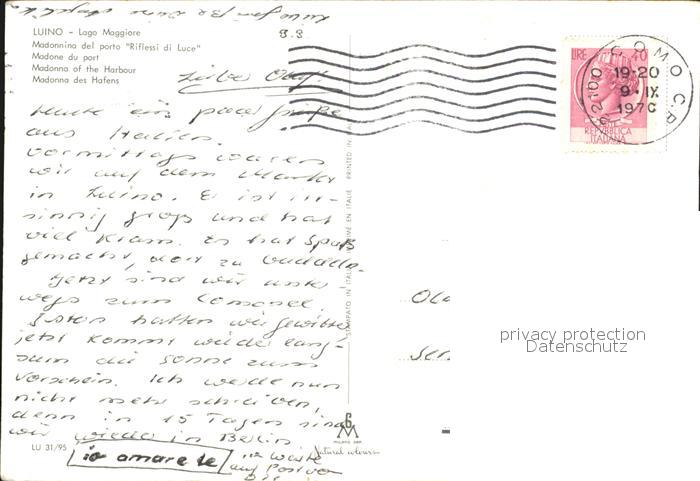 8.9
LUINO - Lago Maggiore
Madonnina del porto "Riflessi di Luce"
Madone du port
Madonna of the Harbour
Madonna des Hafens
Lieber
Heute ein paar Grüße
aus Italien.
Vormittags waren
wir auf dem Markt
in Luino. Er ist irr-
sinnig groß und hat
viel Kram. Es hat Spaß
gemacht, dort zu buddeln.
Jetzt sind wir unter
wegs zum Comosee.
Gestern hatten wir Gewitter
jetzt kommt wieder lang-
sam die Sonne zum
Vorschein. Ich werde nun
nicht mehr schreiben,
denn in 15 Tagen sind
wir wieder in Berlin
io amare te
auf Post von
Dir
LU 31/95
STAMPATO IN ITALIA IMPRIMÉ EN ITALIE PRINTED IN
MILANO
Natural colours
LIRE 40
REPVBBLICA
ITALIANA
22100 COMO C.P.
19-20
9·IX
1976
privacy protection
Datenschutz